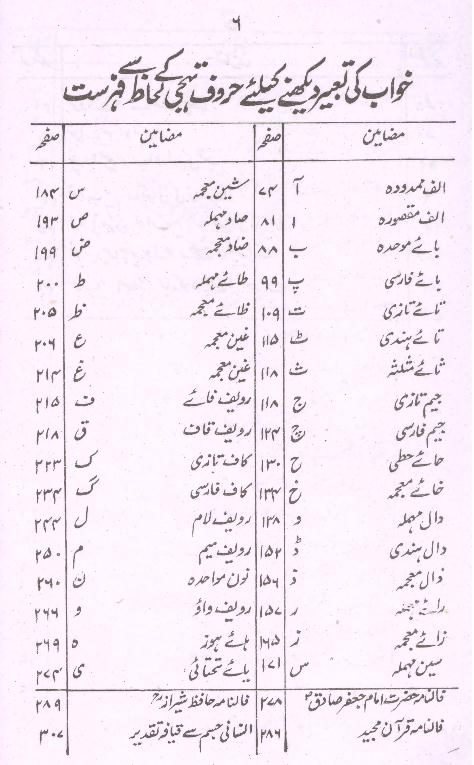 ۶
خواب کی تعبیر دیکھنے کیلئے حروف تہجی کے لحاظ سے فہرست
مضامین صفحہ مضامین صفحہ
الف ممدودہ آ ۷۴ شین معجمہ س ۱۸۴
الف مقصورہ ا ۸۱ صاد مہملہ ص ۱۹۳
بائے موحدہ ب ۸۸ ضاد معجمہ ض ۱۹۹
بائے فارسی پ ۹۹ طائے مہملہ ط ۲۰۰
تائے تازی ت ۱۰۹ ظائے معجمہ ظ ۲۰۵
تائے ہندی ٹ ۱۱۵ غین معجمہ ع ۲۰۶
ثائے مثلثہ ث ۱۱۸ غین معجمہ غ ۲۱۴
جیم تازی ج ۱۱۸ رویف فائے ف ۲۱۵
جیم فارسی چ ۱۲۴ رویف قاف ق ۲۱۸
حائے حطی ح ۱۳۰ کاف تازی ک ۲۲۳
خائے معجمہ خ ۱۳۴ کاف فارسی گ ۲۳۴
دال مہملہ د ۱۳۸ رویف لام ل ۲۴۴
دال ہندی ڈ ۱۵۲ رویف میم م ۲۵۰
ذال معجمہ ذ ۱۵۶ نون مواحدہ ن ۲۶۰
رائے ر ۱۵۷ رویف واؤ و ۲۶۶
زائے معجمہ ز ۱۶۵ ہائے ہوز ہ ۲۶۹
سین مہملہ س ۱۷۱ یائے تحتائی ی ۲۷۴
فالنامہ حضرت امام جعفر صادقؑ ۲۷۸ فالنامہ حافظ شیرازیؒ ۲۸۹
فالنامہ قرآن مجید ۲۸۶ انسانی جسم سے قیافہ تقدیر ۳۰۷